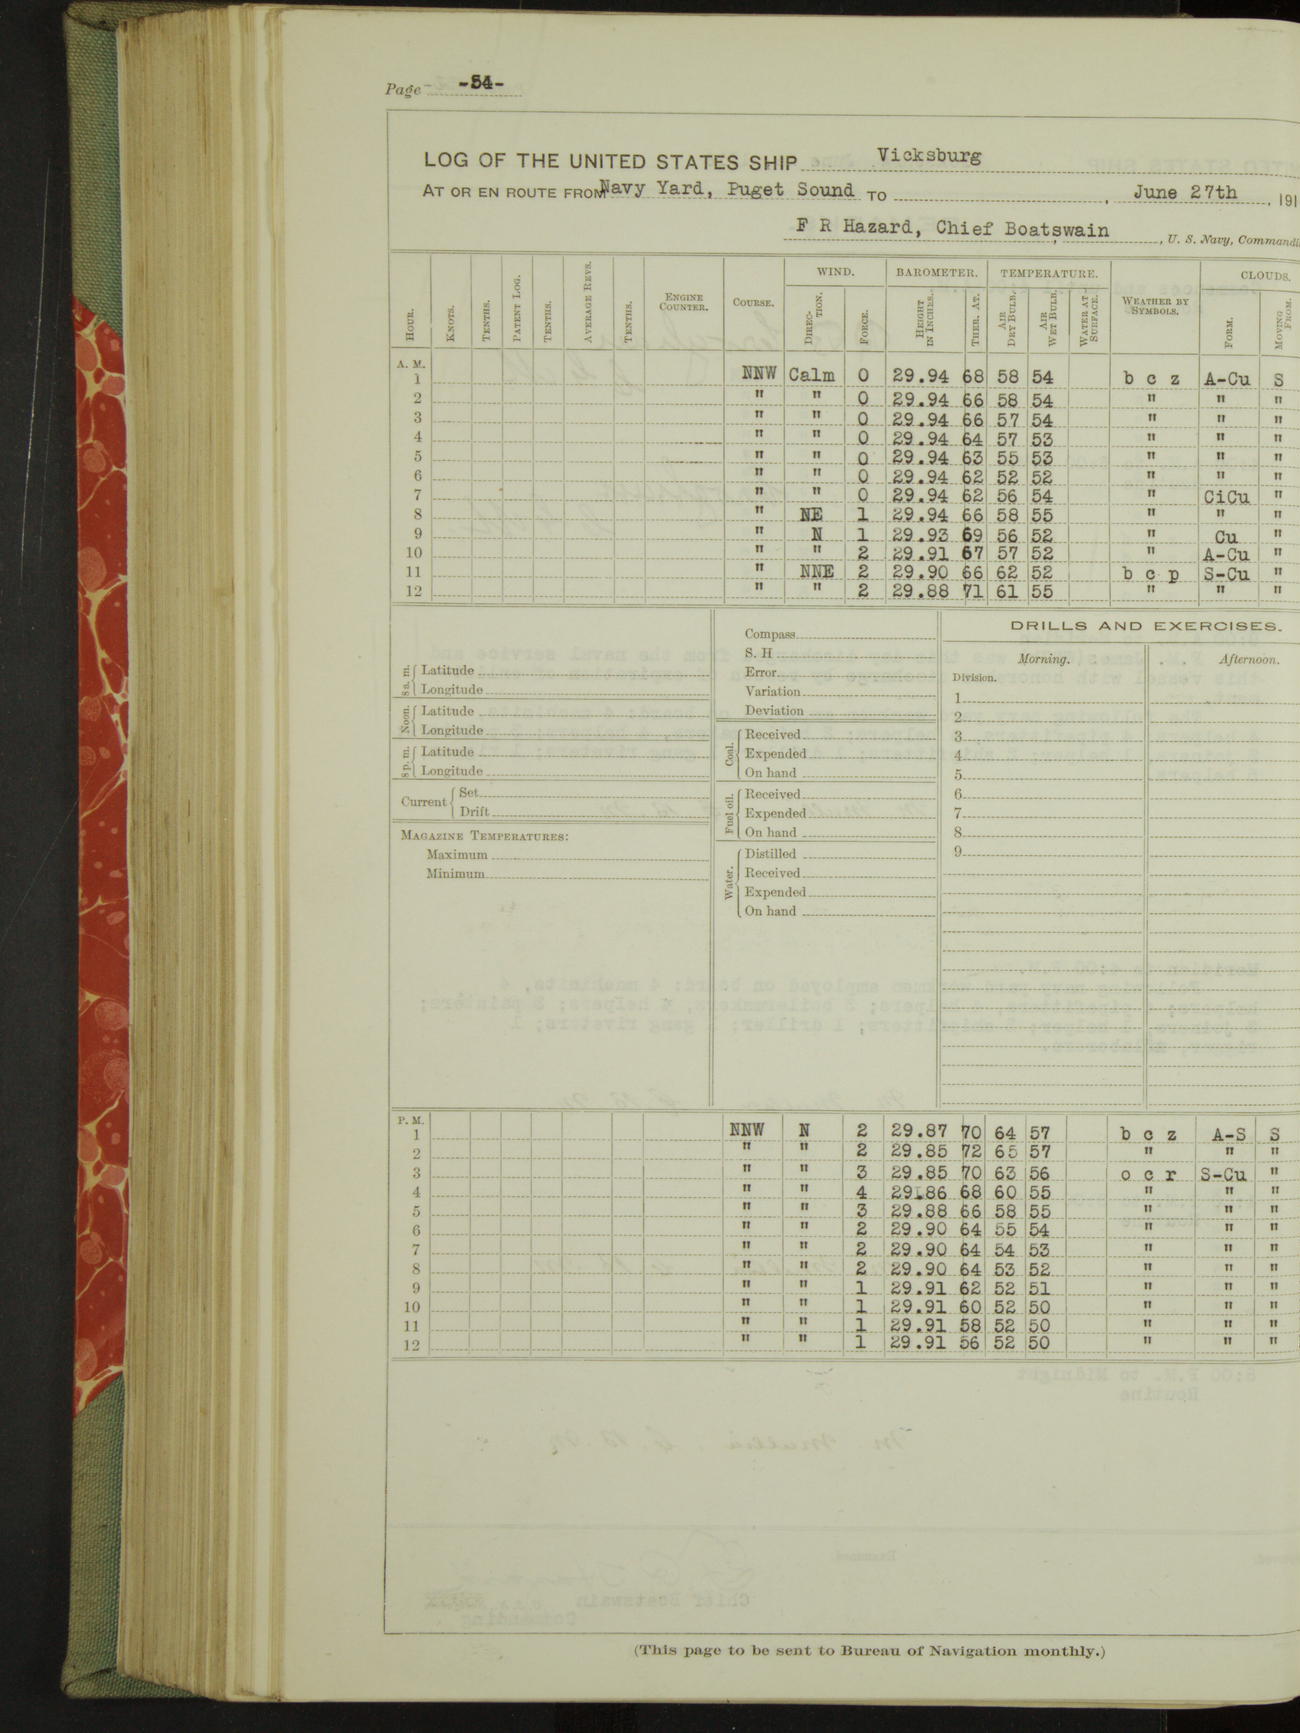 Page -54-
LOG OF THE UNITED STATES SHIP Vicksburg
AT OR EN ROUTE FROM Navy Yard, Puget Sound TO , June 27th , 191
F R Hazard, Chief Boatswain , U. S. Navy, Commandi
WIND. BAROMETER. TEMPERATURE. CLOUDS.
HOUR. KNOTS. TENTHS. PATENT LOG. TENTHS. AVERAGE REVS. TENTHS. ENGINE COUNTER. COURSE. DIREC-TION. FORCE. HEIGHT IN INCHES. THER. AT. AIR DRY BULB. AIR WET BULB. WATER AT SURFACE. WEATHER BY SYMBOLS. FORM. MOVING FROM.
A. M.
1 NNW Calm 0 29.94 68 58 54 b c z A-Cu S
2 " " 0 29.94 66 58 54 " " "
3 " " 0 29.94 66 57 54 " " "
4 " " 0 29.94 64 57 53 " " "
5 " " 0 29.94 63 55 53 " " "
6 " " 0 29.94 62 52 52 " " "
7 " " 0 29.94 62 56 54 " CiCu "
8 " NE 1 29.94 66 58 55 " " "
9 " N 1 29.93 69 56 52 " Cu "
10 " " 2 29.91 67 57 52 " A-Cu "
11 " NNE 2 29.90 66 62 52 b c p S-Cu "
12 " " 2 29.88 71 61 55 " " "
8 a. m. Latitude
Longitude
Noon. Latitude
Longitude
8 p. m. Latitude
Longitude
Current Set
Drift
MAGAZINE TEMPERATURES:
Maximum
Minimum
Compass
S. H
Error
Variation
Deviation
Coal. Received
Expended
On hand
Fuel oil. Received
Expended
On hand
Water. Distilled
Received
Expended
On hand
DRILLS AND EXERCISES.
Morning. Afternoon.
Division.
1
2
3
4
5
6
7
8
9
P. M.
1 NNW N 2 29.87 70 64 57 b c z A-S S
2 " " 2 29.85 72 65 57 " " "
3 " " 3 29.85 70 63 56 o c r S-Cu "
4 " " 4 29.86 68 60 55 " " "
5 " " 3 29.88 66 58 55 " " "
6 " " 2 29.90 64 55 54 " " "
7 " " 2 29.90 64 54 53 " " "
8 " " 2 29.90 64 53 52 " " "
9 " " 1 29.91 62 52 51 " " "
10 " " 1 29.91 60 52 50 " " "
11 " " 1 29.91 58 52 50 " " "
12 " " 1 29.91 56 52 50 " " "
(This page to be sent to Bureau of Navigation monthly.)